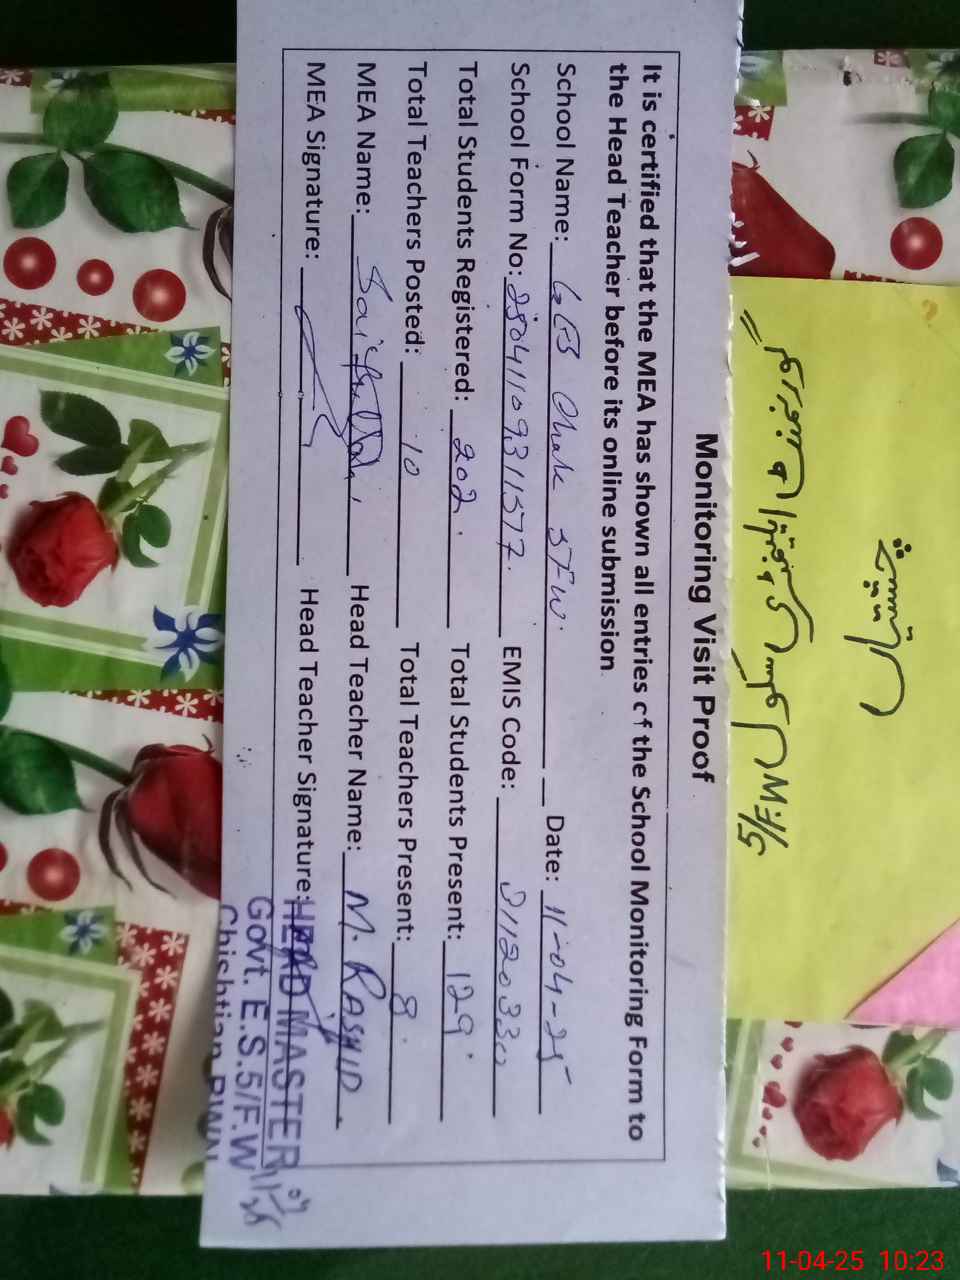 Monitoring Visit Proof
It is certified that the MEA has shown all entries of the School Monitoring Form to
the Head Teacher before its online submission
School Name: GES Chak 5FW. Date: 11-04-25
School Form No: 2504110931577. EMIS Code: 31120330
Total Students Registered: 202. Total Students Present: 129
Total Teachers Posted: 10 Total Teachers Present: 8.
MEA Name: Saifullah Head Teacher Name: M. RASHID.
MEA Signature: Head Teacher Signature:
HEAD MASTER
Govt. E.S.5/F.W
Chishtian BWN
11-04-25 10:23